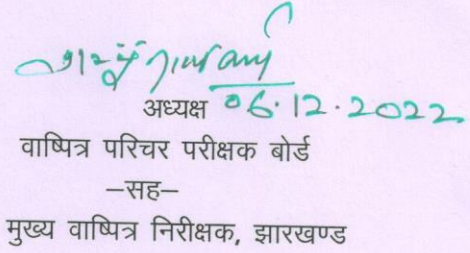 अध्यक्ष 06.12.2022
वाष्पित्र परिचर परीक्षक बोर्ड
–सह–
मुख्य वाष्पित्र निरीक्षक, झारखण्ड